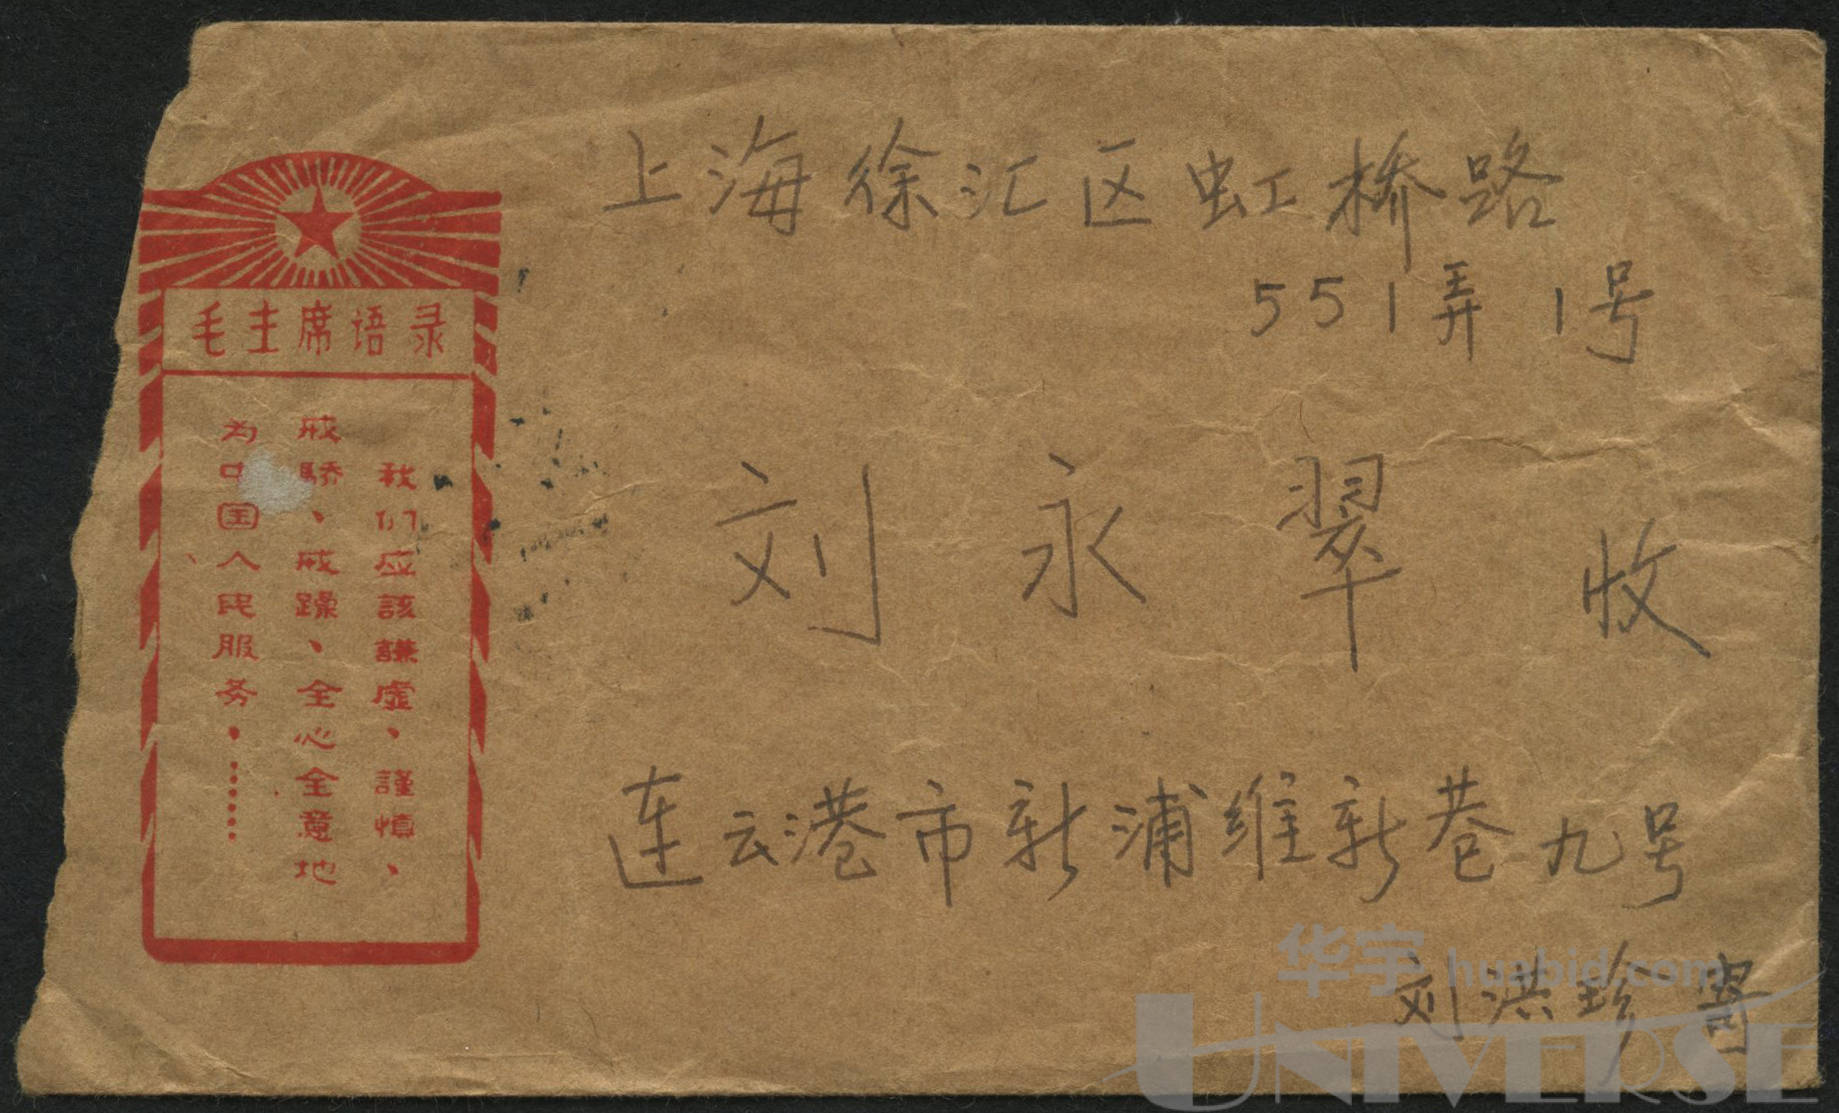 毛主席语录
我们应该謙虚、謹慎、
戒驕、戒躁、全心全意地
为中国人民服务。……
上海徐汇区虹桥路
551弄 1号
刘永翠 收
连云港市新浦维新巷九号
刘洪珍寄
华宇 huabid.com
UNIVERSE